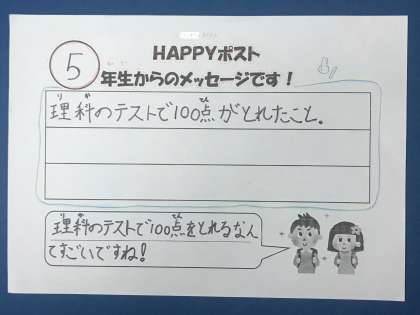 HAPPYポスト
5
年生からのメッセージです!
りか てん
理科のテストで100点がとれたこと.
りか てん
理科のテストで100点をとれるなん
てすごいですね!